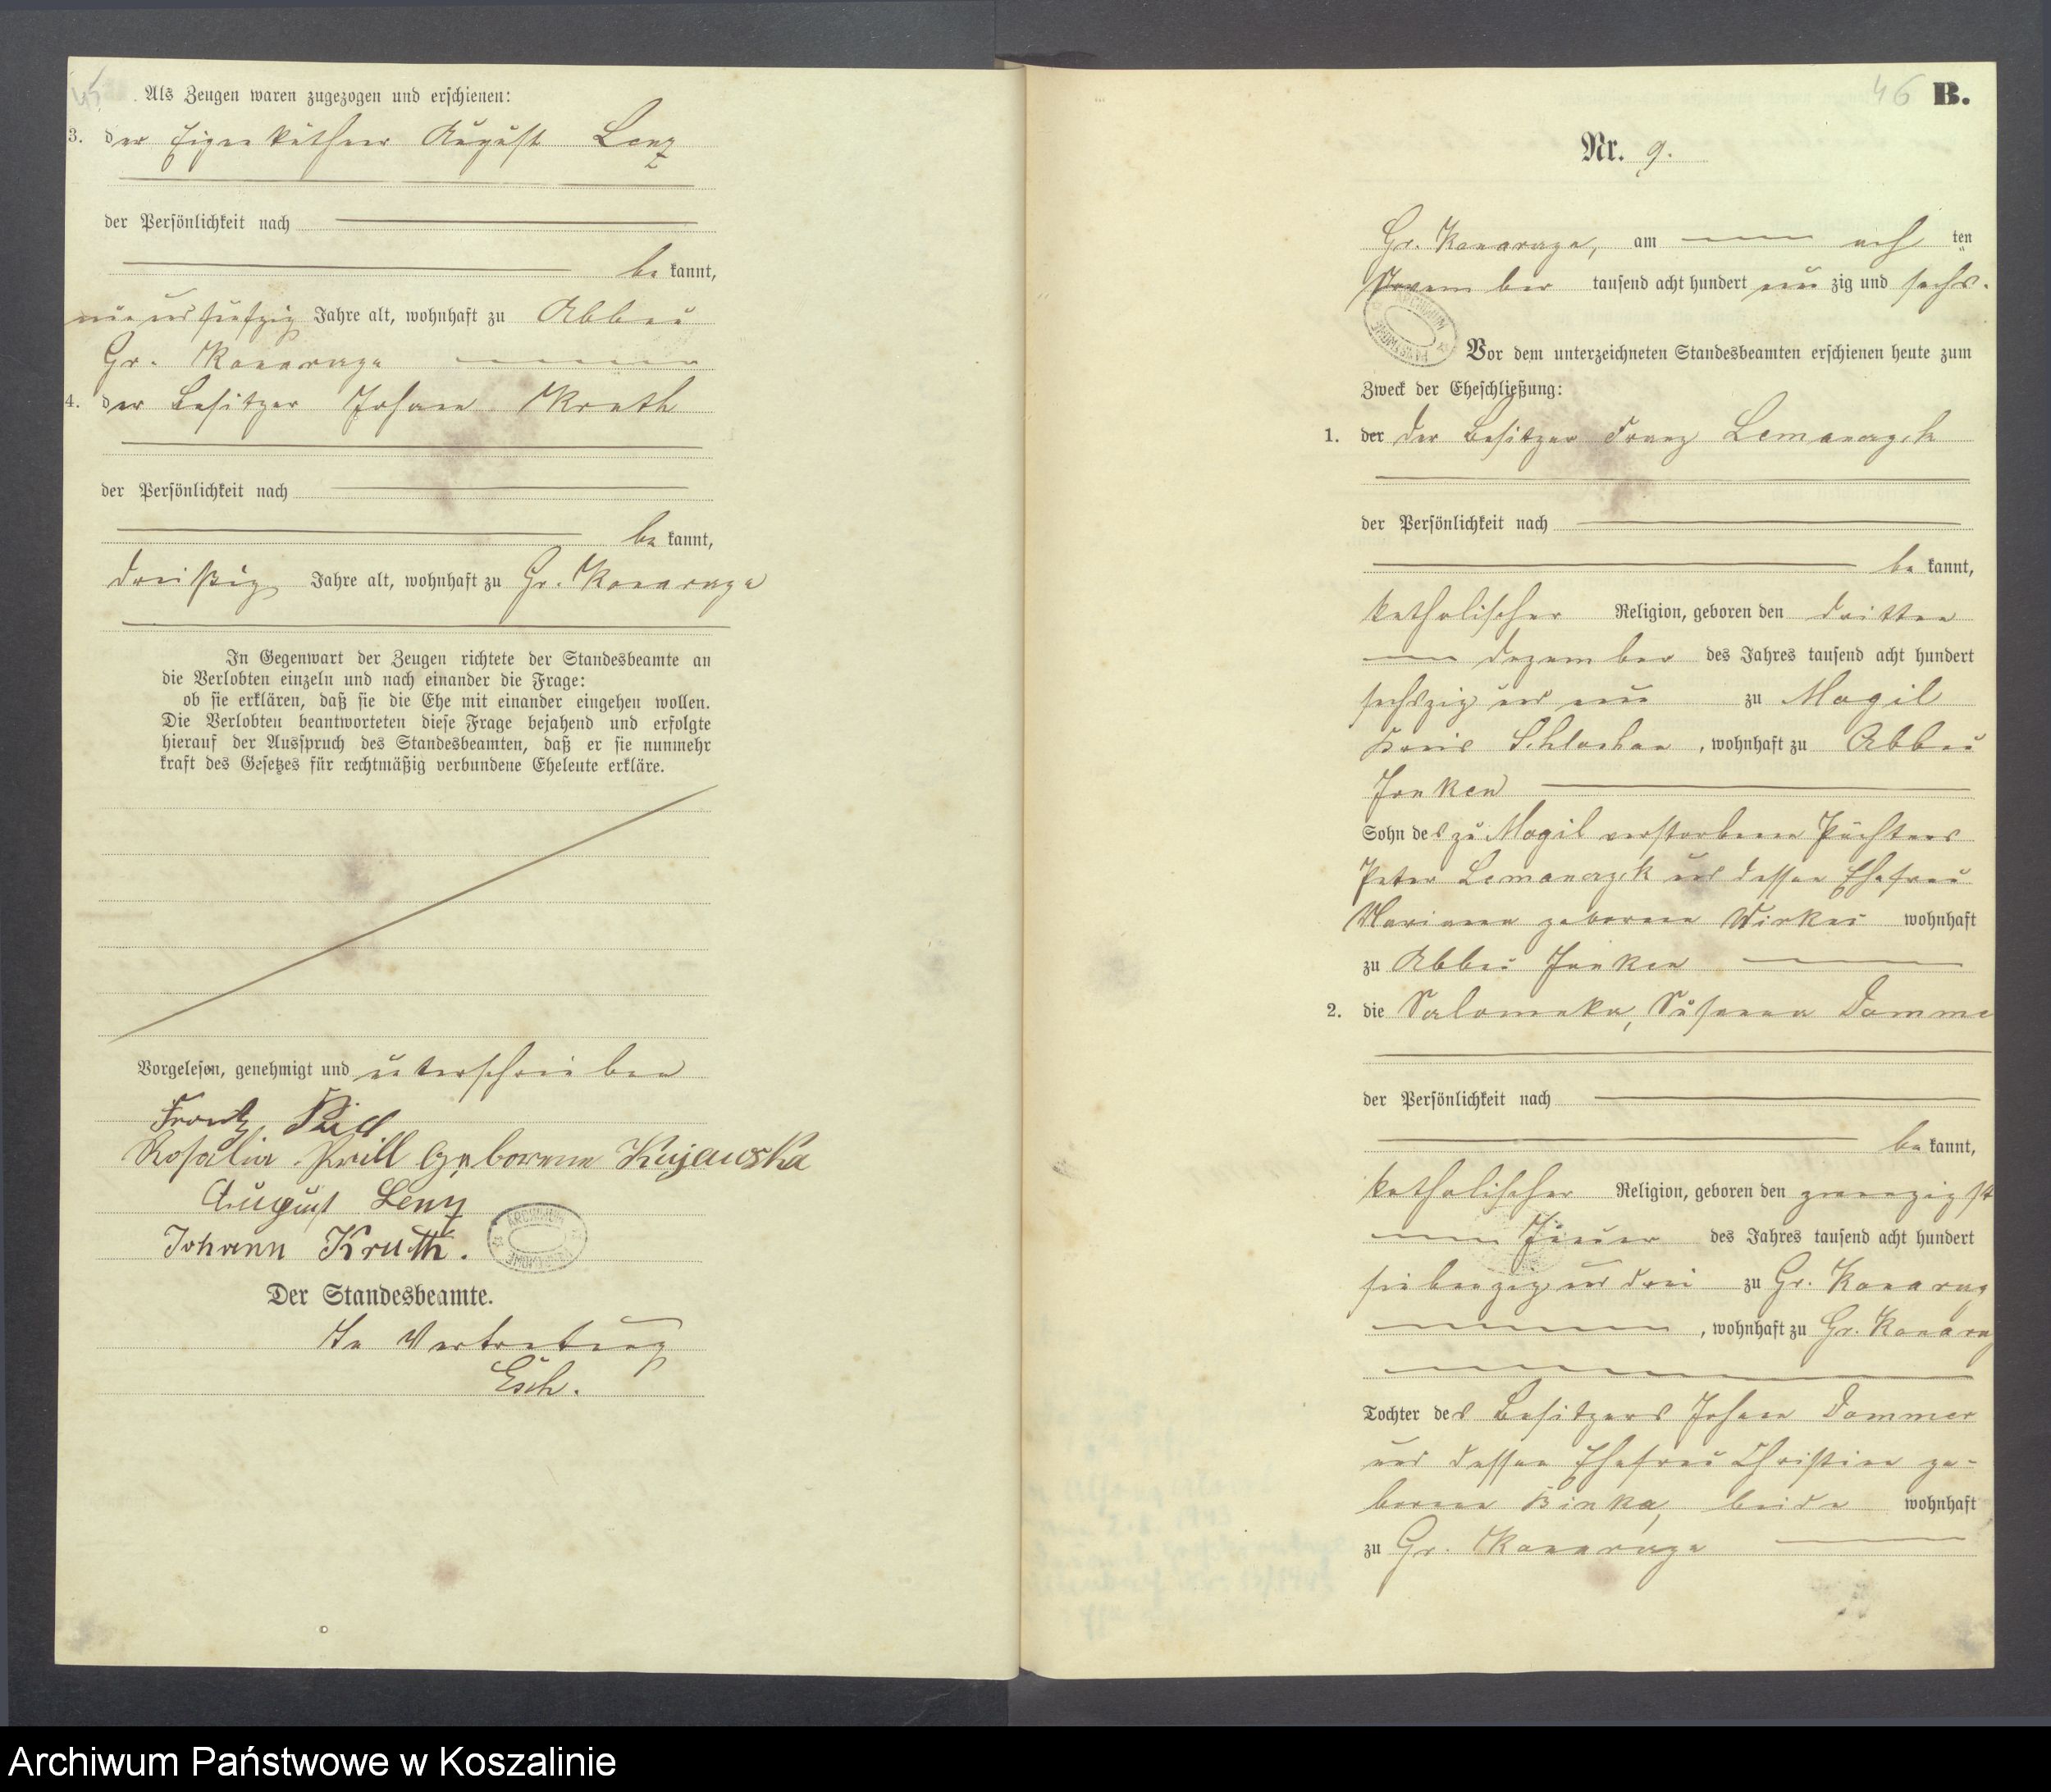 45
Als Zeugen waren zugezogen und erschienen:
3. der Eigenkäthner August Lenz
der Persönlichkeit nach
be kannt,
Jahre alt, wohnhaft zu Abbau
Gr. Konarczyn
4. der Besitzer Johann Kruth
der Persönlichkeit nach
be kannt,
dreißig Jahre alt, wohnhaft zu Gr. Konarczyn
In Gegenwart der Zeugen richtete der Standesbeamte an
die Verlobten einzeln und nach einander die Frage:
ob sie erklären, daß sie die Ehe mit einander eingehen wollen.
Die Verlobten beantworteten diese Frage bejahend und erfolgte
hierauf der Ausspruch des Standesbeamten, daß er sie nunmehr
kraft des Gesetzes für rechtmäßig verbundene Eheleute erkläre.
Vorgelesen, genehmigt und unterschrieben
Frantz Prill
Rosalia Prill geborene Kujawska
August Lenz
Johann Kruth.
ARCHIWUM PAŃSTWOWE
Der Standesbeamte.
In Vertretung
Esch.
46 B.
Nr. 9.
Gr. Konarczyn, am ach ten
November tausend acht hundert neun zig und sechs.
ARCHIWUM PAŃSTWOWE
Vor dem unterzeichneten Standesbeamten erschienen heute zum
Zweck der Eheschließung:
1. der der Besitzer Franz Lemanczyk
der Persönlichkeit nach
be kannt,
katholischer Religion, geboren den dritten
Dezember des Jahres tausend acht hundert
sechszig und neun zu Mogil
Kreis Schlochau, wohnhaft zu Abbau
Jonken
Sohn des zu Mogil verstorbenen Pächters
Peter Lemanczyk und dessen Ehefrau
Mariann geborenen Wirkus wohnhaft
zu Abbau Jonken
2. die Salomeka, Susanna Domme
der Persönlichkeit nach
be kannt,
katholischer Religion, geboren den zwanzigst
Januar des Jahres tausend acht hundert
siebenzig und drei zu Gr. Konarczy
, wohnhaft zu Gr. Konarcz
Tochter des Besitzers Johann Dommer
und dessen Ehefrau Christine ge-
borenen Binka, beide wohnhaft
zu Gr. Konarczyn
Archiwum Państwowe w Koszalinie